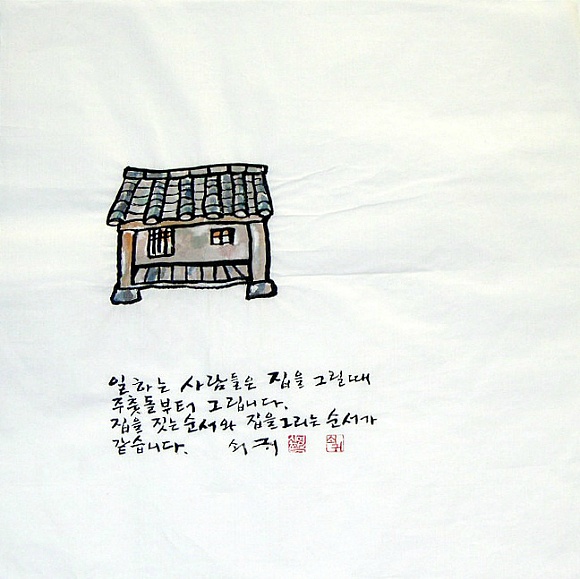 일하는 사람들은 집을 그릴때
주춧돌부터 그립니다.
집을 짓는순서와 집을그리는순서가
같습니다. 쇠귀